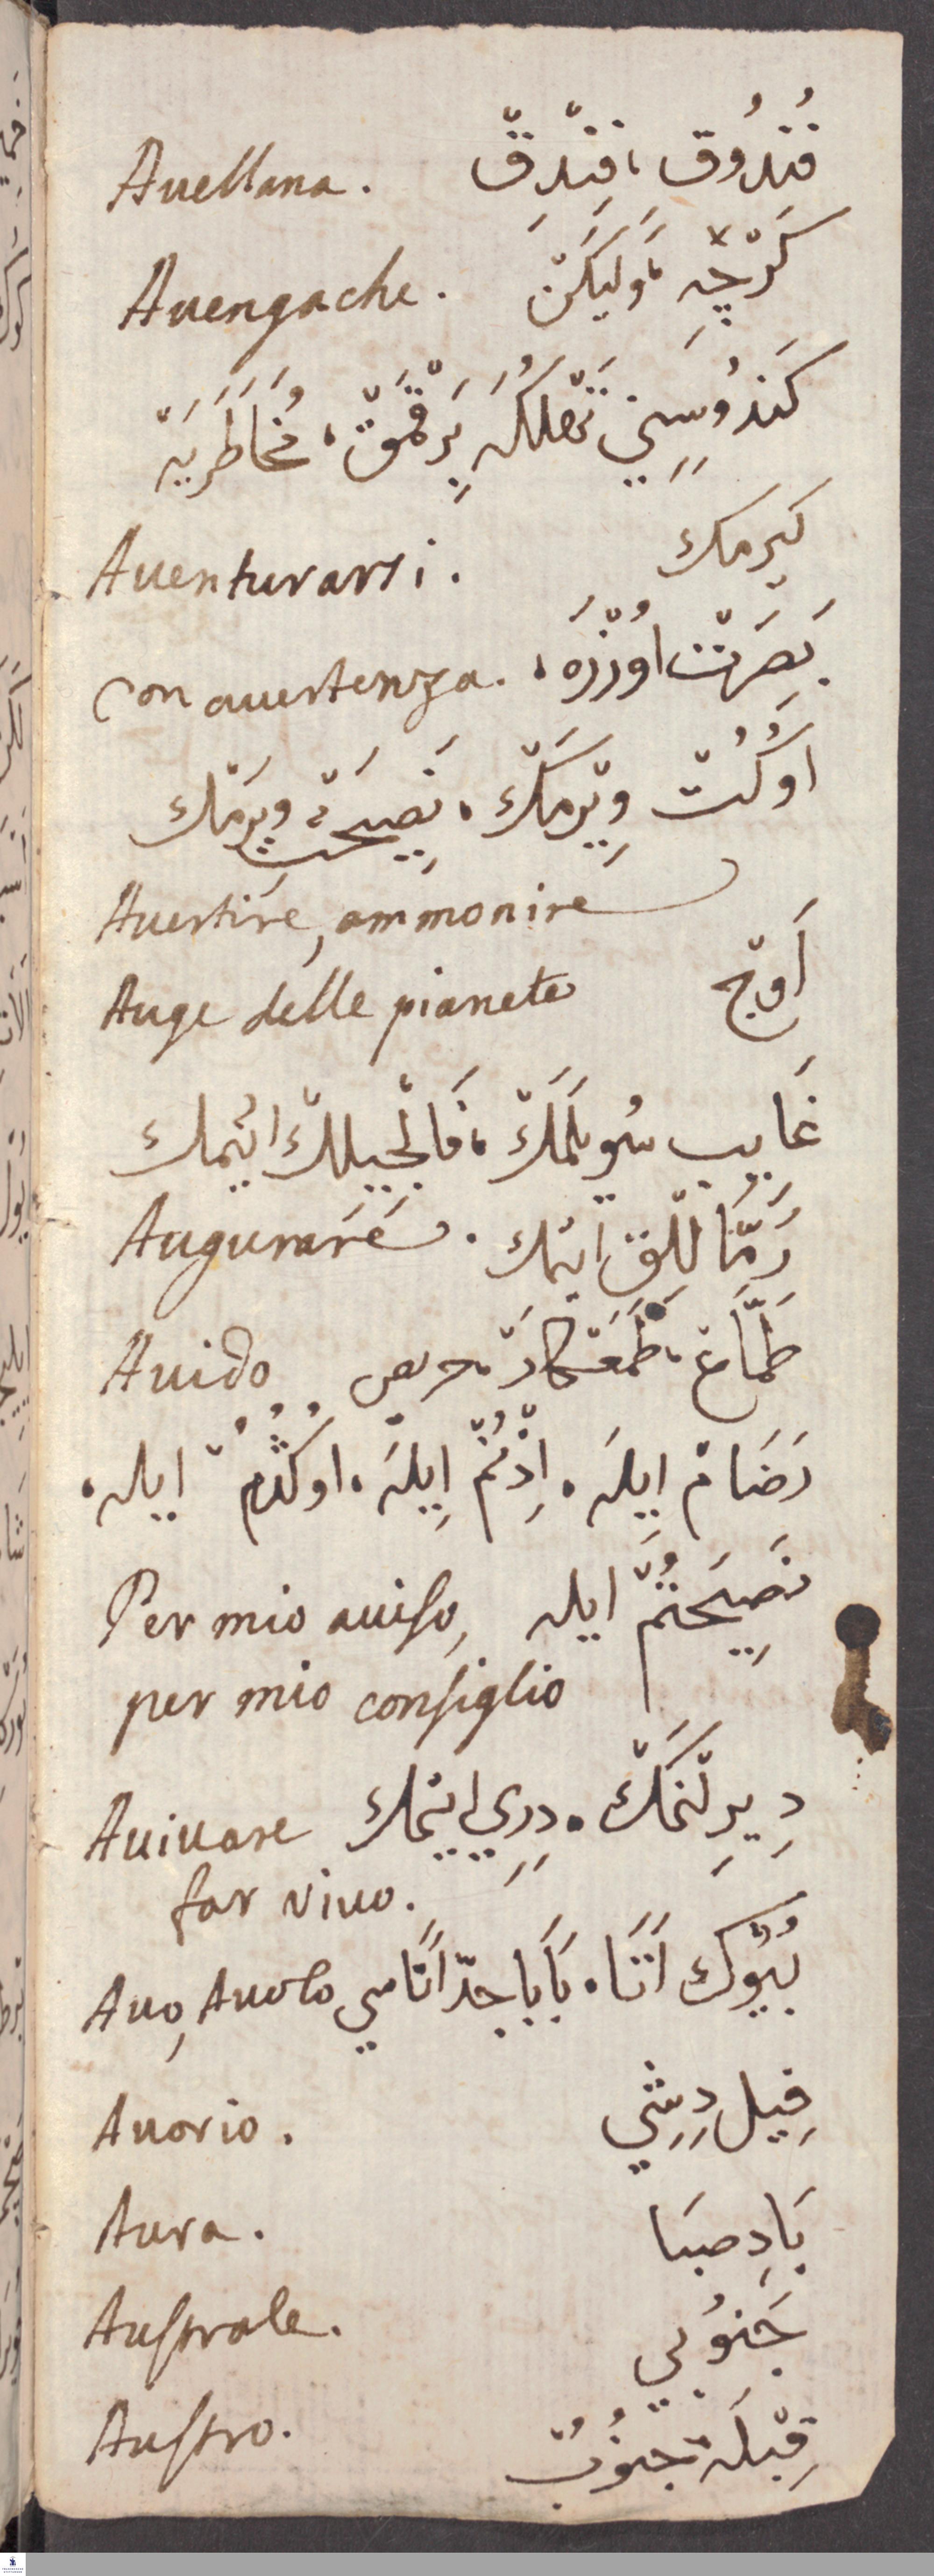 Auellana. فُندُوق ، فِندِق
Auengache. كَرْچِه ، وَلَيكَنْ
كَندُوسِني تَهْلَكُه يَرِقْمَقْ ، مُخَاطَرَيَه
Auenturarsi. كيرمك
Con auertenza. بَصِرَتْ اوُزْرَه ،
اوكُتْ وِيْرمَكْ ، نَصِيحَتْ ويرمَك
Auertire, ammonire
Auge delle pianete اَوْج
غَايب سُويلَمَكْ ، فَالْجيلِك ايتمك
Augurare. رَمَّاللق ايتمك
Auido طَمَّاع ، طَمَعْكَارْ ، حريص
رَضَام ايلَه ، اِذْنُمْ اِيلَه ، اوكُدُم ايله ،
Per mio auiso, نَصِيحَتُمْ ايله
per mio consiglio
Auiuare دِيرِلْتمَكْ ، دِرِي ايتمك
far viuo.
Auo, Auolo بُيُوك اَتَا ، بَابَا جدّ اَتَاسي
Auorio. فِيل دِشِي
Aura. بَادِ صبَا
Australe. جَنوُبي
Austro. قِبْلَه جنوُبْ